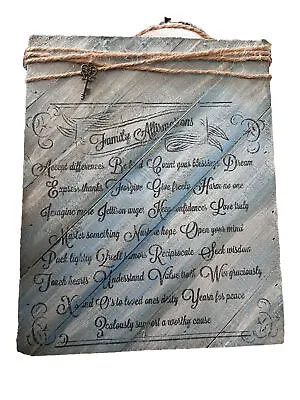 Family Affirmations
Accept differences Be kind Count your blessings Dream
Express thanks Forgive Give freely Harm no one
Imagine more Jettison anger Keep confidences Love truly
Master something Nurture hope Open your mind
Pack lightly Quell rumors Reciprocate Seek wisdom
Touch hearts Understand Value truth Win graciously
and O's to loved ones daily Yearn for peace
Zealously support a worthy cause